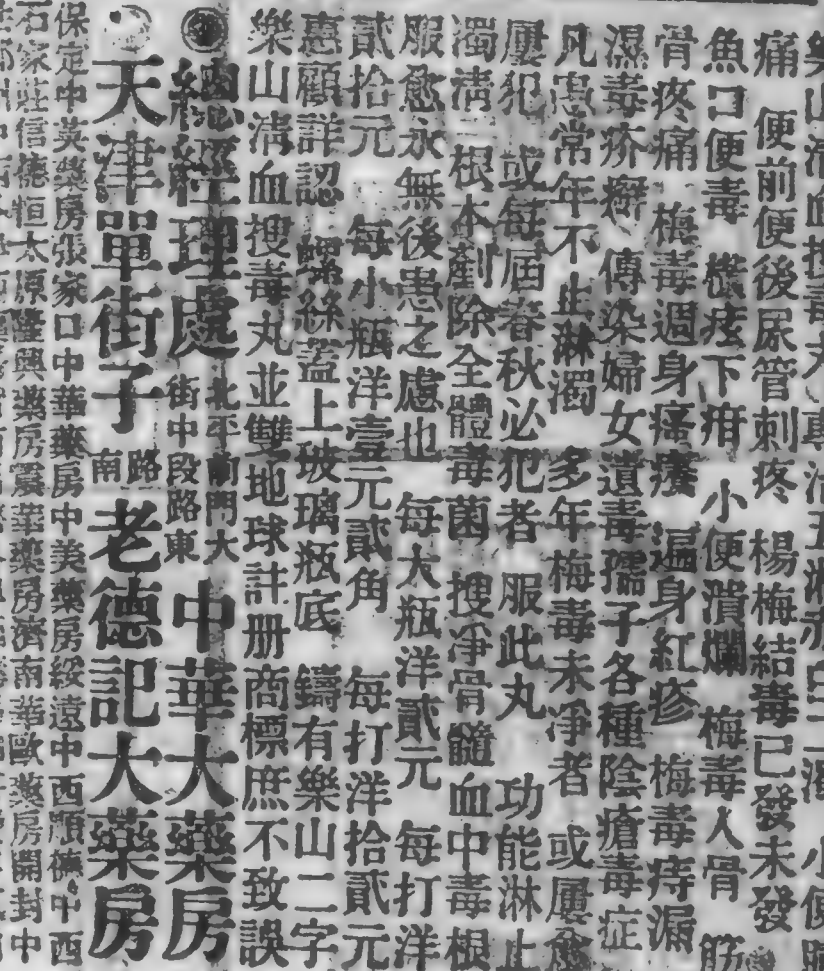 樂山清血搜毒丸 專治五淋 白二濁 小便
痛 便前便後尿管刺疼 楊梅結毒已發未發
魚口便毒 橫痃下疳 小便潰爛 梅毒人骨 筋
骨疼痛 梅毒週身瘙癢 遍身紅疹 梅毒痔漏
濕毒疥癬 傳染婦女遺毒孺子各種陰瘡毒症
凡患常年不止淋濁 多年梅毒未凈者 或屢愈
屢犯 或每屆春秋必犯者 服此丸 功能淋止
濁清 根本剷除全體毒菌 搜凈骨髓血中毒根
服愈永無後患之慮也 每大瓶洋貳元 每打洋
貳拾元 每小瓶洋壹元貳角 每打洋拾貳元
惠顧詳認 螺絲蓋上玻璃瓶底 鑄有樂山二字
樂山清血搜毒丸並雙地球註册商標庶不致誤
總經理處 北平南門大街中段路東 中華大藥房
天津單街子 路南 老德記大藥房
保定中英藥房張家口中華藥房中美藥房綏遠中西順 中西
石家莊信德恒太原隆興藥房震華藥房濟南華歐藥房開封中